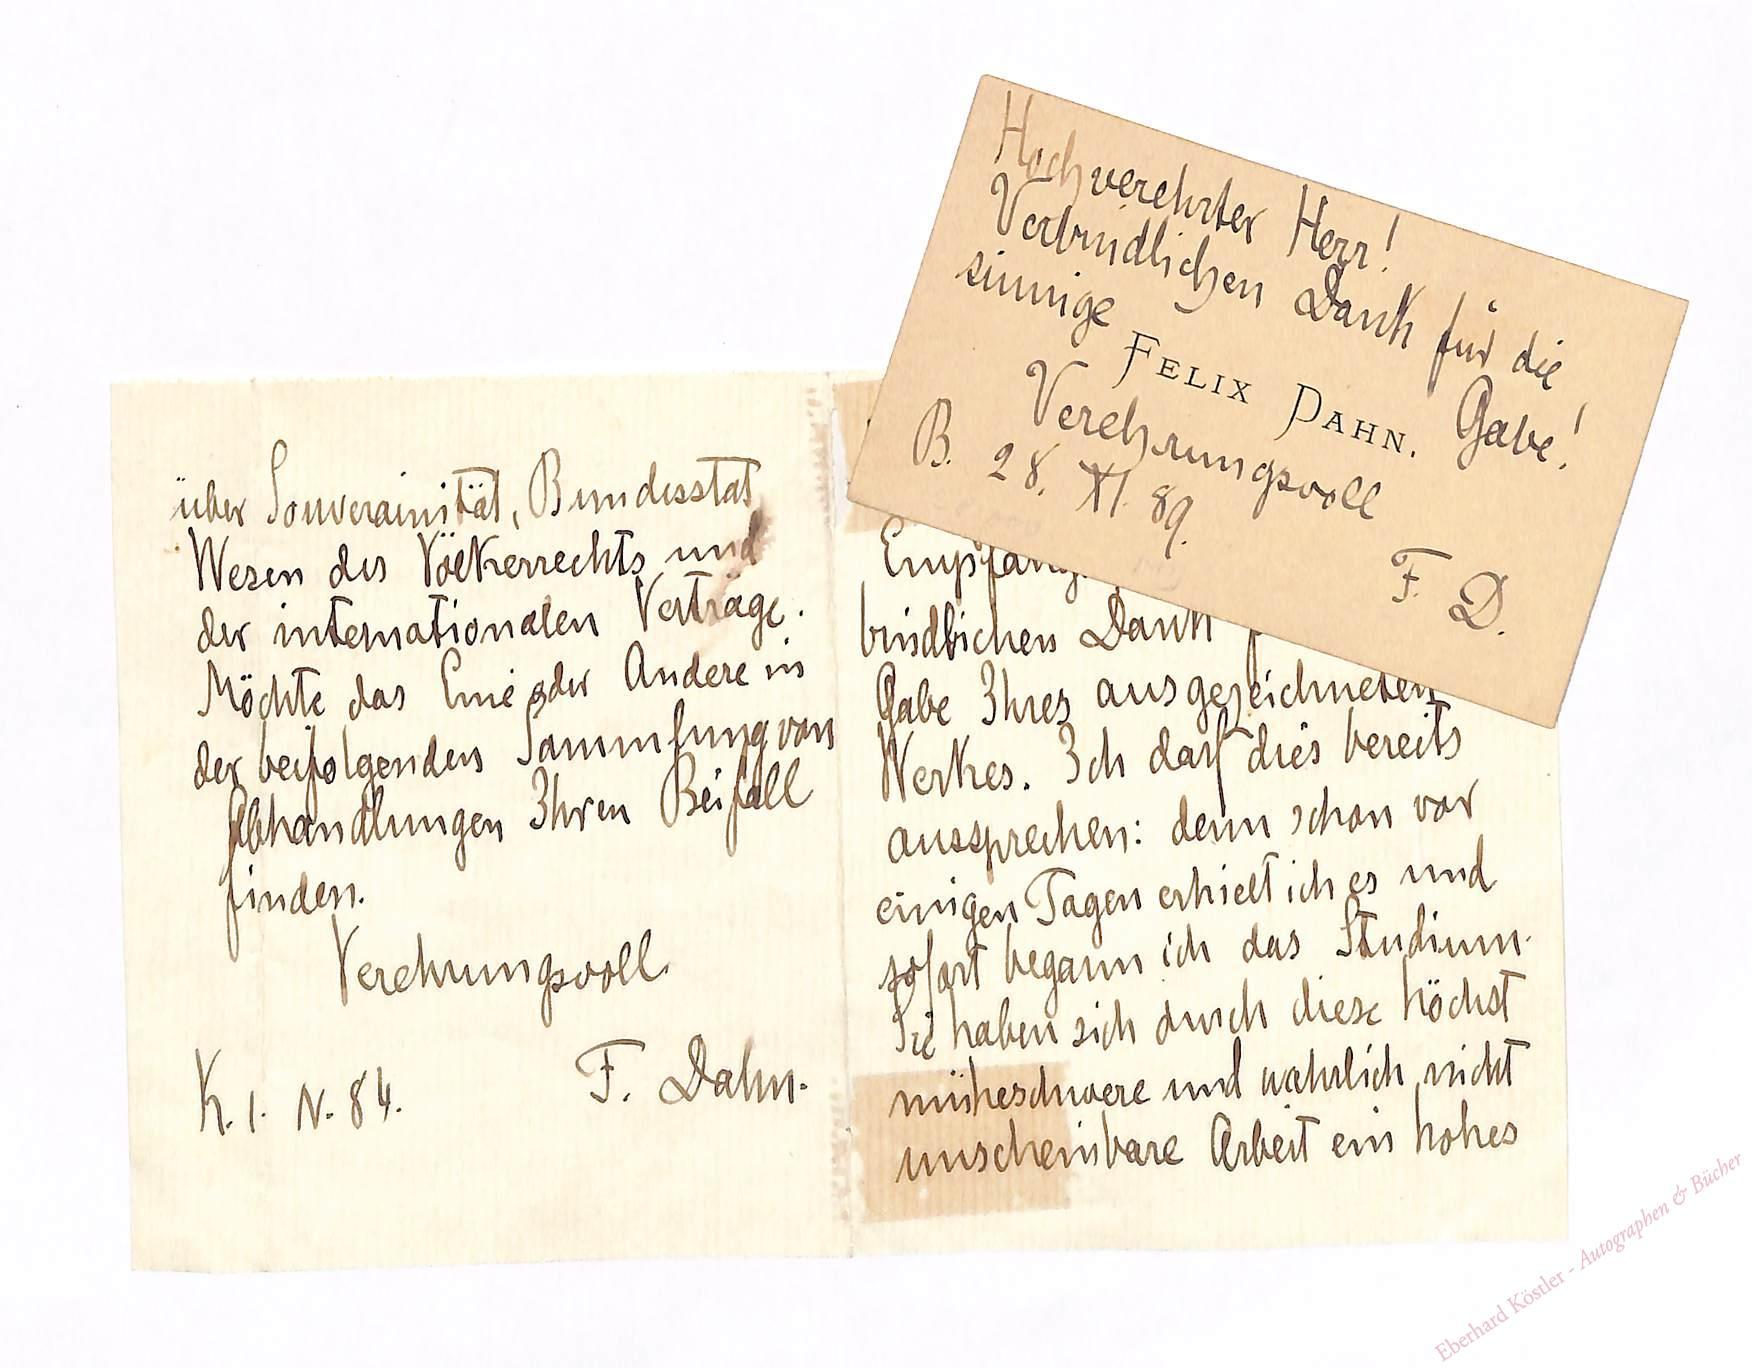 Hochverehrter Herr!
Verbindlichen Dank für die
sinnige
FELIX DAHN. Gabe!
Verehrungsvoll
B. 28. XI. 89.
F. D.
über Souverainität, Bundesstat
Wesen des Völkerrechts und
der internationalen Verträge.
Möchte das Eine oder Andere in
der beifolgenden Sammlung von
Abhandlungen Ihren Beifall
finden.
Verehrungsvoll
K. 1. N. 84.
F. Dahn.
Empfang
bindlichen Dank
Gabe Ihres ausgezeichneten
Werkes. Ich darf dies bereits
aussprechen: denn schon vor
einigen Tagen erhielt ich es und
sofort begann ich das Studium.
Sie haben sich durch diese höchst
müheschwere und wahrlich nicht
unscheinbare Arbeit ein hohes
Eberhard Köstler - Autographen & Bücher